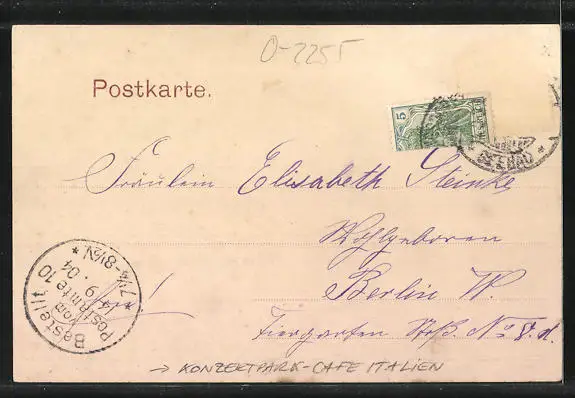 O-2255
Postkarte.
5
Fräulein Elisabeth Steinke
Wohlgeboren
Berlin W.
Tiergarten Str. No 8. d.
Bestellt
vom
Postamte 10
14 9. 04
* 7¼-8½V. *
→ KONZERTPARK-CAFE ITALIEN